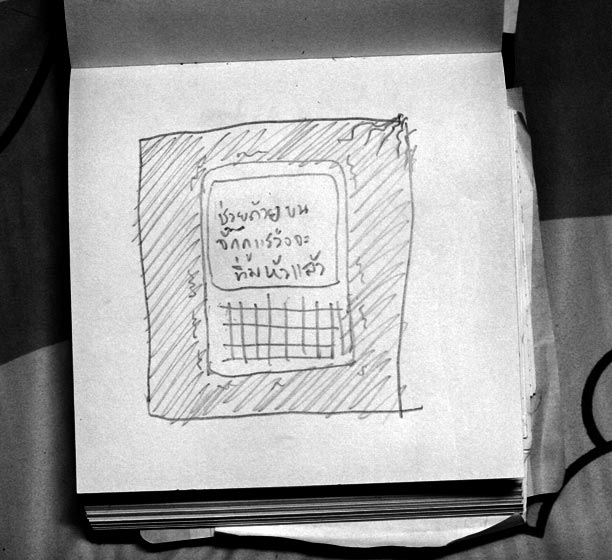 ช่วยด้วย บน
จิ๊กกูแรวิงจะ
ทิ่มหัวแล้ว